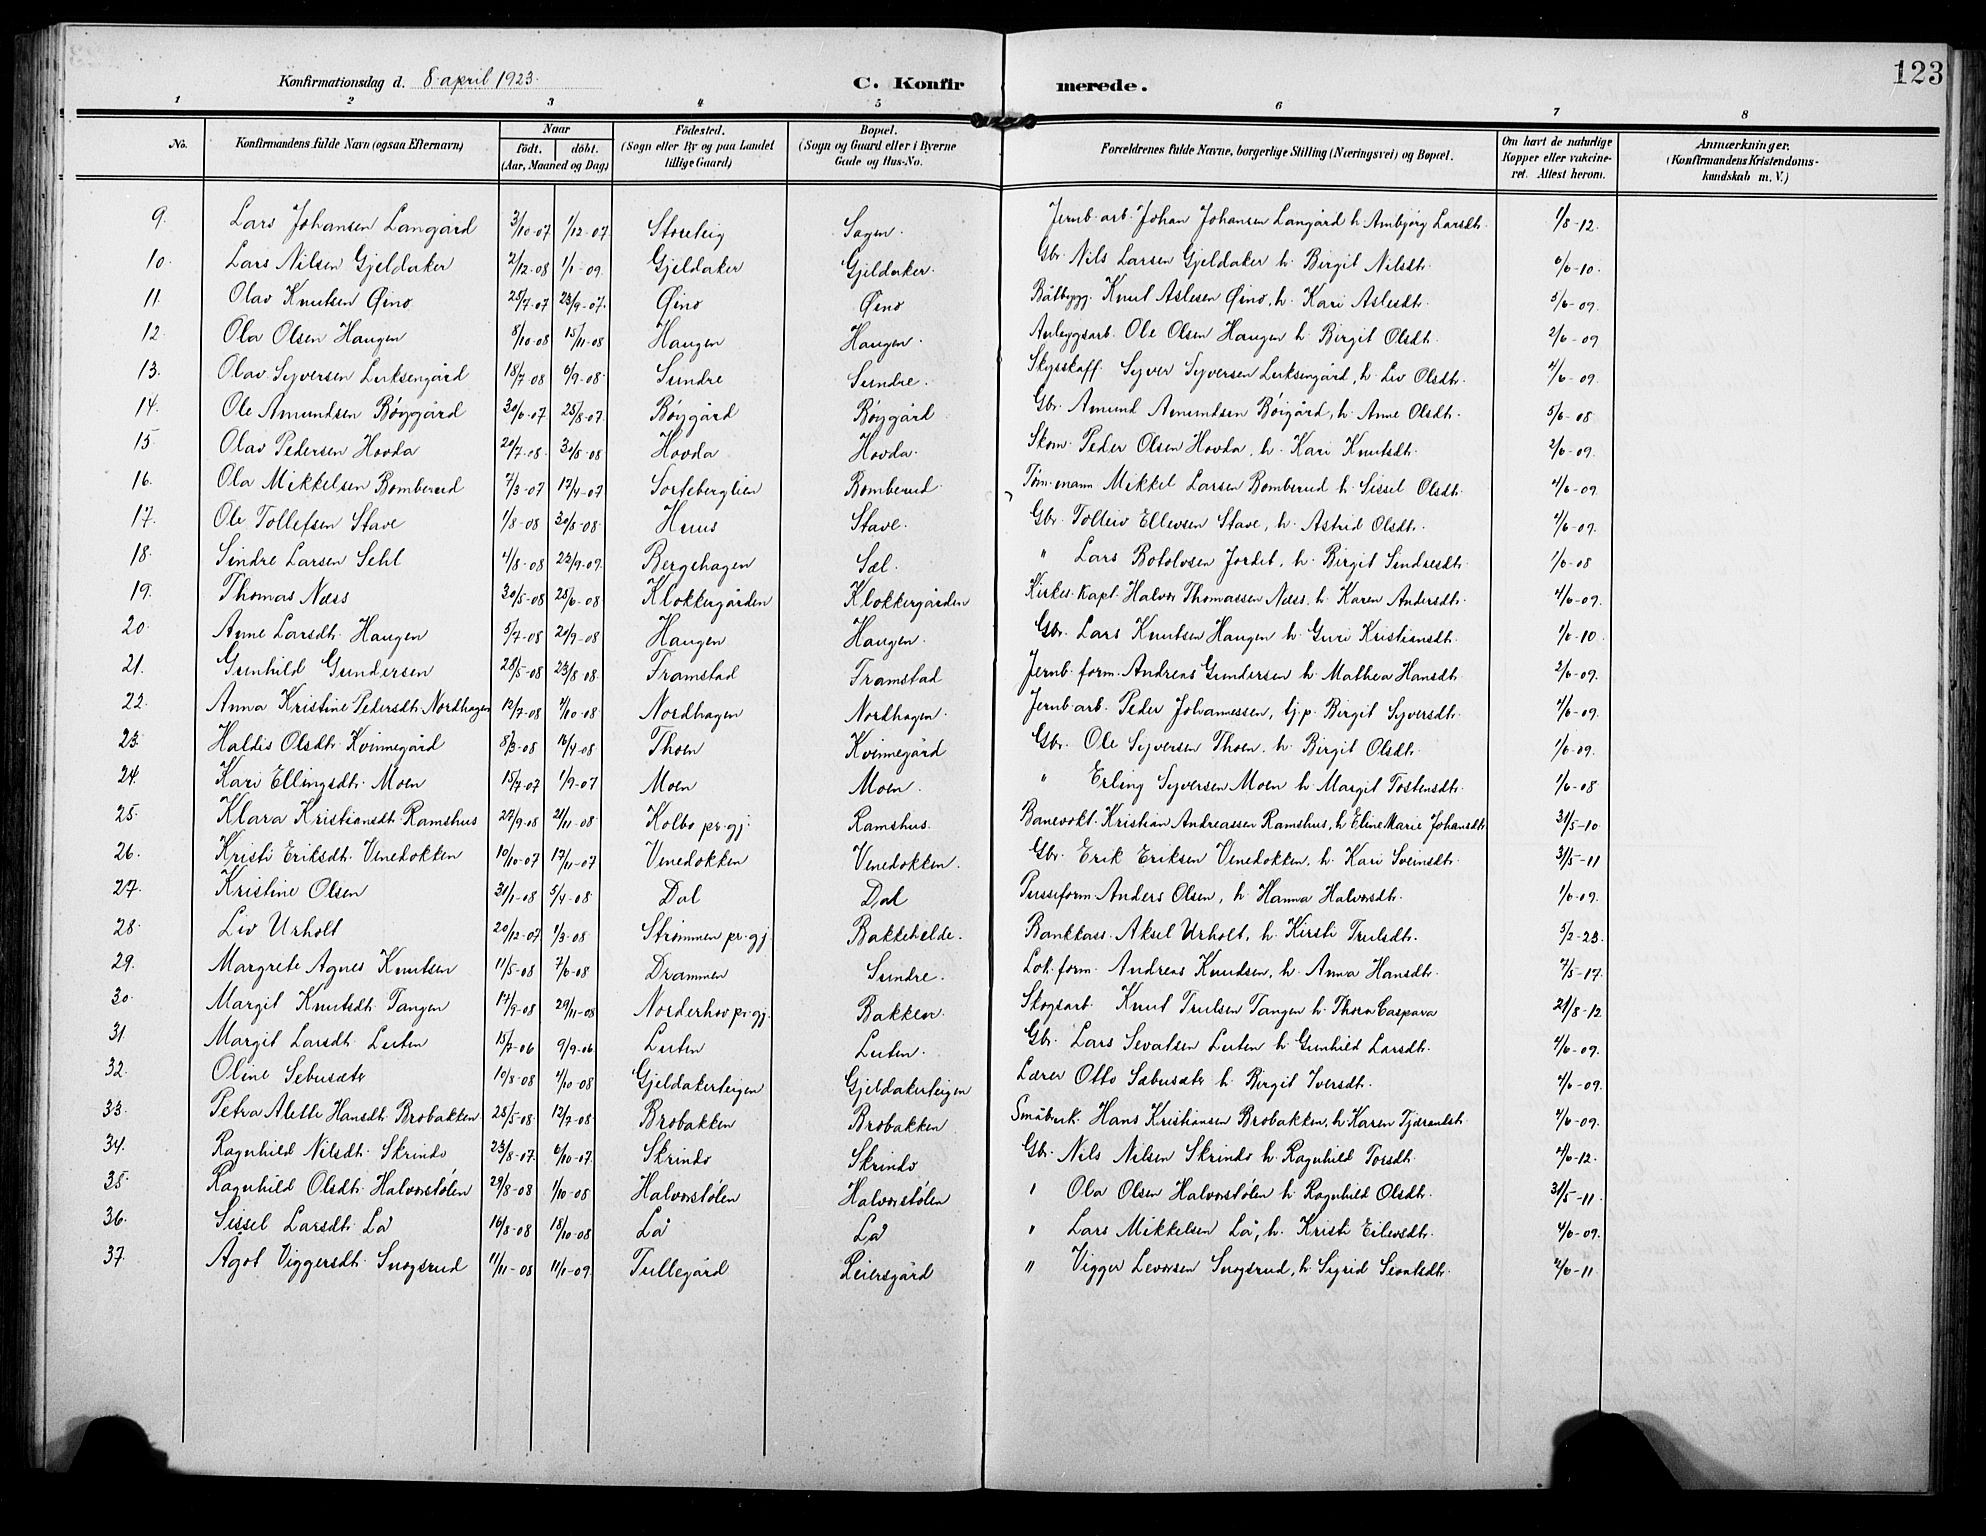 Konfirmationsdag d. 8 april 1923. C. Konfirmerede. 123
1 2 3 4 5 6 7 8
No. Konfirmandens fulde Navn (ogsaa Efternavn) Naar födt. döbt. (Aar, Maaned og Dag) Födested. (Sogn eller By og paa Landet tillige Gaard) Bopæl. (Sogn og Gaard eller i Byerne Gade og Hus-No. Forældrenes fulde Navne, borgerlige Stilling (Næringsvei) og Bopæl. Om havt de naturlige Kopper eller vakcineret. Attest herom. Anmærkninger. (Konfirmandens Kristendomskundskab m. V.)
9. Lars Johansen Langård 3/10-07 1/12-07 Storeteig Sagen. Jernb. arb. Johan Johansen Langård h. Ambjørg Larsdtr. 1/8-12.
10. Lars Nilsen Gjeldaker 2/12-08 1/1-09. Gjeldaker Gjeldaker. Gbr. Nils Larsen Gjeldaker h. Birgit Nilsdtr. 6/6-10.
11. Olav Knutsen Øino 25/7-07 23/9-07. Øino Øino Båtbygg. Knut Aslesen Øino, h. Kari Aslesdtr. 5/6-09.
12. Ola Olsen Haugen 8/10-08 15/11-08 Haugen Haugen. Anleggsarb. Ole Olsen Haugen h. Birgit Olsdtr. 2/6-09
13. Olav Syversen Luksengård 18/7-08 6/9-08. Sundre Sundre. Skysskaff. Syver Syversen Luksengård, h. Liv Olsdtr. 4/6-09.
14. Ole Amundsen Bøygård 30/6-07 25/8-07. Bøygård Bøygård Gbr. Amund Amundsen Bøigård, h. Anne Olsdtr. 5/6-08
15. Olav Pedersen Hovda 20/7-08. 30/8-08 Hovda Hovda. Skom. Peder Olsen Hovda, h. Kari Knutsdtr. 2/6-09.
16. Ola Mikkelsen Bomberud 7/3-07 17/4-07 Sorteberglien Bomberud Tøm.mann Mikkel Larsen Bomberud h. Sissel Olsdtr. 4/6-09.
17. Ole Tollefsen Stave 1/8-08 30/8-08. Huus Stave. Gbr. Tolleiv Ellevsen Stave, h. Astrid Olsdtr. 4/6-09.
18. Sindre Larsen Sehl 4/8-08 22/9-09. Bergehagen Sæl. " Lars Botolvsen Jordet, h. Birgit Sindresdtr. 1/6-08
19. Thomas Næss 30/5-08 28/6-08 Klokkergården Klokkergården Kirkes. kapt. Halvor Thomassen Næss. h. Karen Andersdtr. 4/6-09.
20. Anne Larsdtr. Haugen 5/7-08 20/9-08 Haugen Haugen. Gbr. Lars Knutsen Haugen h. Guri Kristiansdtr. 1/6-10
21. Gunhild Gundersen 28/5-08 23/8 08. Framstad Framstad Jernb. form. Andreas Gundersen h. Mathea Hansdtr. 2/6-09.
22. Anna Kristine Pedersdtr. Nordhagen 12/7-08 4/10-08 Nordhagen Nordhagen. Jernb.arb. Peder Johannessen, tj.p. Birgit Syversdtr. 4/6-09.
23. Haldis Olsdtr. Kvinnegård 8/3-08 16/4-08 Thoen Kvinnegård Gbr. Ole Syversen Thoen. h. Birgit Olsdtr. 1/6-09.
24. Kari Ellingsdtr. Moen 15/7-07 1/9-07 Moen Moen. " Erling Syversen Moen h. Margit Tostensdtr. 1/6-08
25. Klara Kristiansdtr. Ramshus 27/9-08 21/11-08. Kolbo pr.gj. Ramshus. Banevokt. Kristian Andreassen Ramshus, h. Eline Marie Johansdtr. 31/5-10
26. Kristi Eriksdtr. Venedokken 10/10-07 17/11-07 Venedokken Venedokken. Gbr. Erik Eriksen Venedokken, h. Kari Sveinsdtr. 31/5-11
27. Kristine Olsen 31/1-08 5/4-08 Dal Dal Anders Olsen, h. Hanna Halvorsdtr. 1/6-09.
28. Liv Urholt 20/12-07 1/3-08 Strømmen pr.gj. Bakkehelde. Bankkass. Aksel Urholt, h. Kirsti Trulsdtr. 5/2-23.
29. Margrete Agnes Knutsen 11/5-08 7/6-08 Drammen Sundre. Lok. form. Andreas Knudsen, h. Anna Hansdtr. 7/5-17.
30. Margit Knutsdtr. Tangen 17/9-08 29/11-08 Norderhov pr.gj. Bakken. Skogsarb. Knut Trulsen Tangen h. Thora Caspara 21/8-12
31. Margit Larsdtr. Luten 15/7-06 9/9-06. Luten Luten. Gbr. Lars Sevatsen Luten h. Gunhild Larsdtr. 4/6-09.
32. Oline Sebusæter 10/8-08 4/10-08 Gjeldakerteigen Gjeldakerteigen Lærer Otto Sæbusæter h. Birgit Iversdtr. 4/6-09.
33. Petra Alette Hansdtr. Brobakken 28/5-08. 12/7-08 Brobakken Brobakken Småbruk. Hans Kristiansen Brobakken, h. Karen Tjærandsdtr. 4/6-09.
34. Ragnhild Nilsdtr. Skrindo 23/8-07. 6/10-07. Skrindo Skrindo Gbr. Nils Nilsen Skrindo h. Ragnhild Torsdtr. 4/6-12.
35. Ragnhild Olsdtr. Halvorstølen 29/8-08 1/10-08 Halvorstølen Halvorstølen " Ola Olsen Halvorstølen h. Ragnhild Olsdtr. 31/5-11.
36. Sissel Larsdtr. Lå 16/8-08 18/10-08 Lå Lå " Lars Mikkelsen Lå, h. Kristi Eilevsdtr. 4/6-09.
37. Agot Viggersdtr. Snogsrud 11/11-08 11/1-09. Tullegård Reiersgård " Vigger Levorsen Snogsrud, h. Sigrid Sevatsdtr. 2/6-11